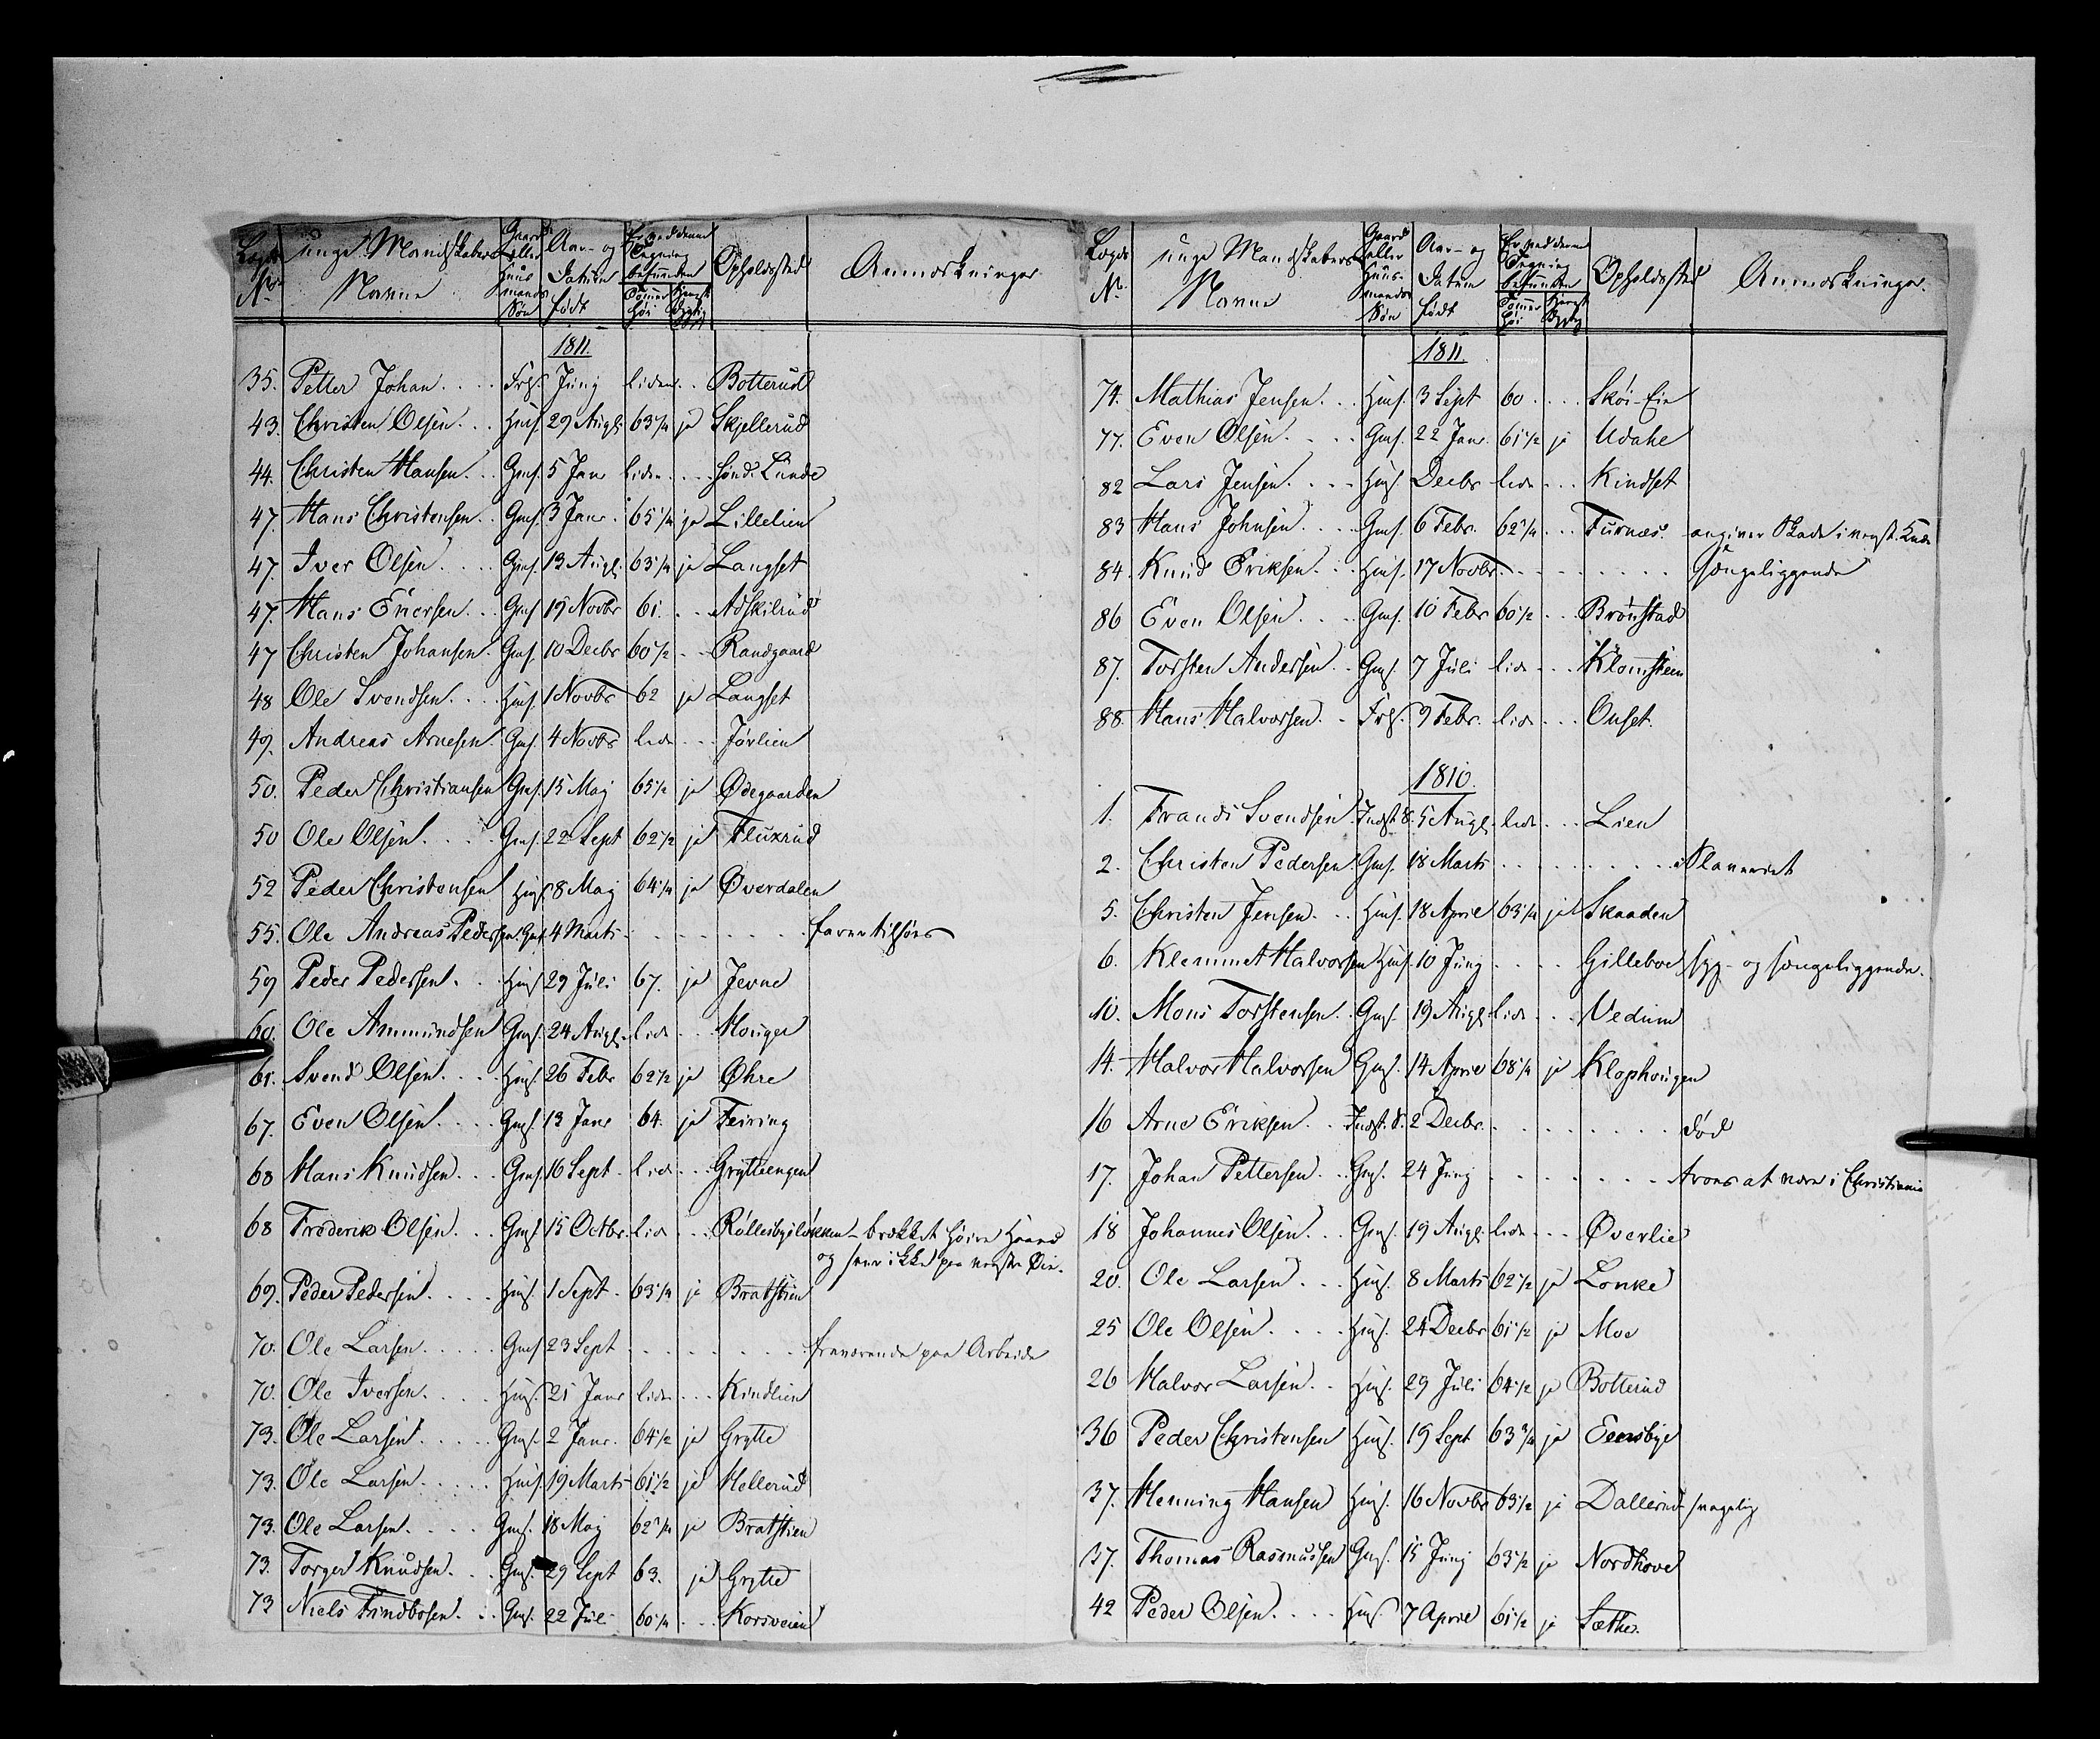 Lægds No. unge Mandskabers Navne Gaard- eller Huusmands Søn Aar- og Datum født Er ved denne Tegning befunden Tommer høi Krigsdygtig Opholdssted Anmærkninger
1811.
35. Petter Johan . . . . Frs. Junj liden . . Botterud
43. Christen Olsen . . . Hms. 29 Augt. 63 1/4 ja Skjellerud
44. Christen Hansen . . Gms. 5 Janr liden . . . Sønd. Lunde
47. Hans Christensen . . Gms. 3 Janr. 65 1/4 ja Lillelien
47. Iver Olsen . . . . Gms. 13 Augt. 63 1/4 ja Langset
47. Hans Eversen . . Gms. 19 Novbr 61. . . Adskilrud
47 Christen Johansen . Gms. 10 Decbr 60 1/2 . . Randgaard
48 Ole Svendsen . . . Hms. 1 Novbr 62 ja Langset
49. Andreas Arnesen Gms. 4 Novbr liden . . . Jørlien
50. Peder Christiansen Gms. 15 Maj 65 1/2 ja Ødegaarden
50 Ole Olsen . . . . Gms. 22 Sept 62 1/2 ja Fluxrud
52 Peder Christensen Hms. 8 Maj 64 1/4 ja Øverdalen
55. Ole Andreas Pedersen Gms. 4 Marts . . . . . . farer tilsøes
59 Peder Pedersen . . Hms. 29 Juli 67. ja Jevne
60. Ole Ammundsen Gms. 24 Augt. lidn . . . Houger
61. Svend Olsen . . . . Hms. 26 Febr 62 1/2 ja Øhre
67. Even Olsen . . . . Gms. 13 Janr 64. ja Feiring
68 Hans Knudsen . . . Gms. 16 Sept. liden . . . Grytteengen
68 Frederik Olsen . . . Gms. 15 Octbr. liden . . . Rollesbyeløkken - brækket høire Haand
og seer ikke paa venstre Øie.
69. Peder Pedersen . . . . Hms. 1 Sept. 63 1/4 ja Bratstien
70. Ole Larsen . . . . . Gms. 23 Sept . . . . . . . fraværende paa Arbeide
70. Ole Iversen . . . . Hms. 21 Janr liden . . . Kindlien
73. Ole Larsen . . . . . Gms. 2 Janr. 64 1/2 ja Grytte
73. Ole Larsen . . . . . Hms. 19 Marts 61 1/2 ja Hellerud
73. Ole Larsen . . . . Gms. 18 Maj 62 3/4 ja Bratstien
73. Torger Knudsen . . . Gms. 29 Sept 63. ja Grytte
73 Niels Findbosen . . . Gms. 22 Juli 60 1/4 . . . Korsveien
Lægds No. unge Mandskabers Navne Gaard- eller Huus- mands Søn Aar- og Datum født Er ved denne Tegning befunden Tommer høi Krigsdygtig Opholdssted Anmærkninger.
1811.
74. Mathias Jensen . . . Hms. 3 Sept 60 . . . . Skøi-Eie
77. Even Olsen . . . . Gms. 22 Janr. 61 1/2 ja Udahe
82 Lars Jensen . . . . Hms. Decbr liden . . . Kindset
83 Hans Johnsen . . . . Gms. 6 Febr. 62 3/4 . . . Furnæs. angiver Skade i venst. Knæe
84. Knud Eriksen . . . Hms. 17 Novbr. . . . . . . . . . sængeliggende
86 Even Olsen . . . . Gms. 10 Febr 60 1/2 . . . Brønstad
87. Torsten Andersen . . Gms. 7 Juli liden . . . Klomsteen
88. Hans Halvorsen . . Frs. 9 Febr. liden . . . Onset.
1810.
1. Frands Svendsen Indst. S. 5 Augt. liden . . . Lien
2. Christen Pedersen . Gms. 18 Marts . . . . . . . . Slaveriet
5. Christen Jensen . . . Hms. 18 April 63 1/4 ja Skaaden
6. Klemmet Halvorsen Hms. 10 Junj . . . . Gilleboe syg- og sængeliggende.
10. Mons Torstensen . . Gms. 19 Augt. liden . . . Vedum
14. Halvor Halvorsen Gms. 14 April 68 1/4 ja Klophougen
16 Arne Eriksen . . Indst. S. 2 Decbr. . . . . . . . . . død
17. Johan Pettersen . . . Gms. 24 Junj . . . . . . . . troes at være i Christiania
18 Johannes Olsen . . . Gms. 19 Augt. liden . . . Øverlie
20. Ole Larsen . . . Hms. 8 Marts 62 1/2 ja Lonke
25 Ole Olsen . . . . Hms. 24 Decbr 61 1/2 ja Moe
26 Halvor Larsen . . Hms. 29 Juli 64 1/2 ja Botterud
36 Peder Christensen Hms. 19 Sept 63 3/4 ja Eensbye
37. Henning Hansen Hms. 16 Novbr 63 1/2 ja Dallerud svagelig
37. Thomas Rasmussen Gms. 15 Junj 63 1/2 ja Nordhove
42 Peder Olsen . . . . Hms. 7 April 61 1/2 ja Sæther